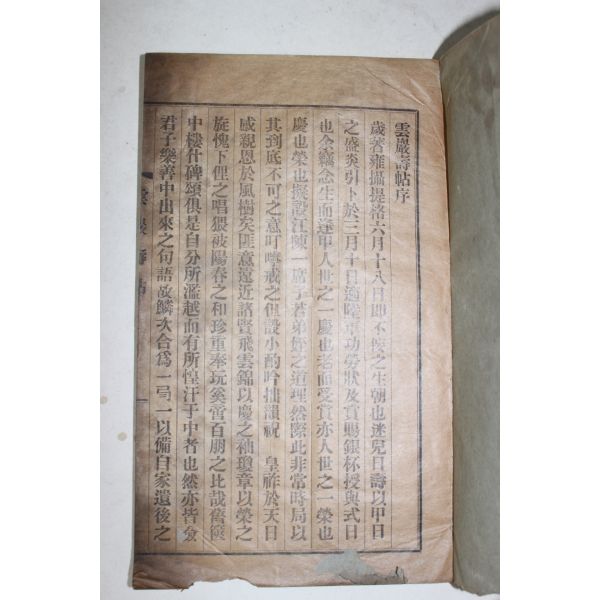 雲巖壽帖序
歲著雍攝提洛六月十八日卽不佞之生朝也迷兒日壽以甲日
之盛炎引卜於三月十日適陸軍功勞狀及賞賜銀杯授與式日
也余竊念生而逢甲人世之一慶也老而受賞亦人世之一榮也
慶也榮也擬設江陳一席子若弟侄之道理然際此非常時局以
其到底不可之意叮嚀戒之但設小酌吟拙韻祝 皇祚於天日
感親恩於風樹矣匪意遠近諸賢飛雲錦以慶之袖瓊章以榮之
旋愧下俚之唱猥被陽春之和珍重奉玩奚啻百朋之比哉舊篋
中樓什碑頌俱是自分所濫越而有所惶汗于中者也然亦皆僉
君子樂善中出來之句語故鱗次合爲一局一以備自家遺後之